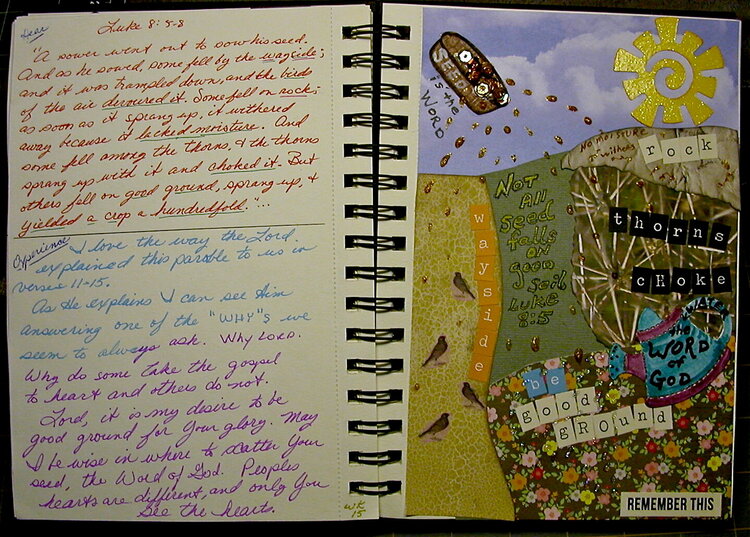 Luke 8:5-8
"A sower went out to sow his seed.
And as he sowed, some fell by the wayside;
and it was trampled down, and the birds
of the air devoured it. Some fell on rock;
as soon as it sprang up, it withered
away because it lacked moisture. And
some fell among the thorns, & the thorns
sprang up with it and choked it. But
others fell on good ground, sprang up, &
yielded a crop a hundredfold."...
Experience
I love the way the Lord
explained this parable to us in
verse 11-15.
As He explains I can see Him
answering one of the "WHY"s we
seem to always ask. Why LORD.
Why do some take the gospel
to heart and others do not.
Lord, it is my desire to be
good ground for Your glory. May
I be wise in where to scatter Your
seed, the Word of God. Peoples
hearts are different, and only You
see the hearts.
WK
15
SEED
is the
WORD
No moisture
withers
rock
wayside
Not
All
Seed
falls
on
good
soil
LUKE
8:5
thorns
cHOKe
WATER
the
WORD
of
GOD
be
good
gROund
REMEMBER THIS